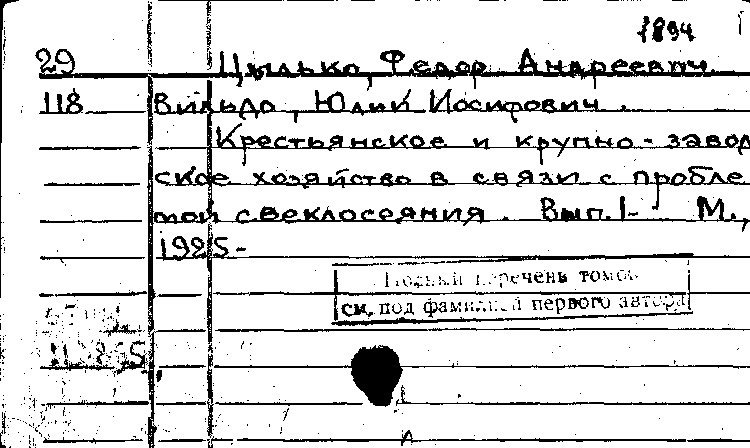 1894
29 Цылько, Федор Андреевич.
118 Вильдо, Юлий Иосифович.
Крестьянское и крупно-завод
ское хозяйство в связи с пробле
мой свеклосеяния. Вып. 1- М.,
1925-
Полный перечень томов
см. под фамилией первого автора